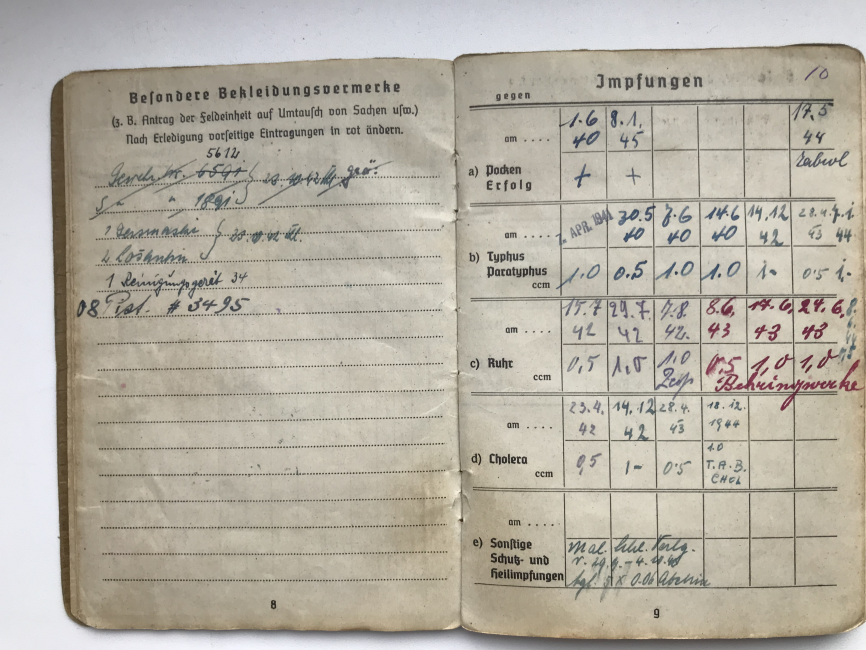 Besondere Bekleidungsvermerke
(z. B. Antrag der Feldeinheit auf Umtausch von Sachen usw.)
Nach Erledigung vorseitige Eintragungen in rot ändern.
5612
1891
1 Gasmaske
1 Reinigungsgerät 34
08 Pist. # 3495
8
Impfungen
10
gegen
am ....
1.6 8.1. 17.5
40 45 44
a) Pocken
Erfolg
+ +
am ....
7. APR. 1941 30.5 7.6 14.6 14.12 28.4. 7.1.
40 40 40 42 43 44
b) Typhus
Paratyphus
ccm
1.0 0.5 1.0 1.0 1- 0.5 1.-
am ....
15.7 29.7 7.8 8.6. 17.6. 24.6.
42 42 42. 43 43 43
c) Ruhr
ccm
0,5 1,0 1.0 0.5 1,0 1,0
Behringwerke
am ....
23.4. 14.12 28.4. 18.12.
42 42 43 1944
d) Cholera
ccm
0,5 1- 0.5 1.0
T.A.B.
CHOL
am ....
e) Sonstige
Schutz- und
Heilimpfungen
Mal.
9